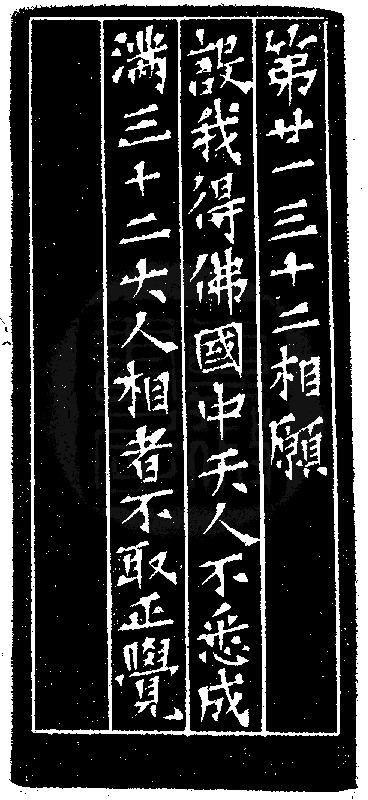 第廿一三十二相願
設我得佛國中天人不悉成
滿三十二大人相者不取正覺